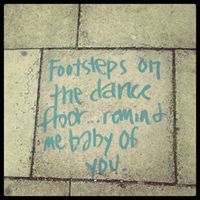 Footsteps on
the dance
floor...remind
me baby of
you.